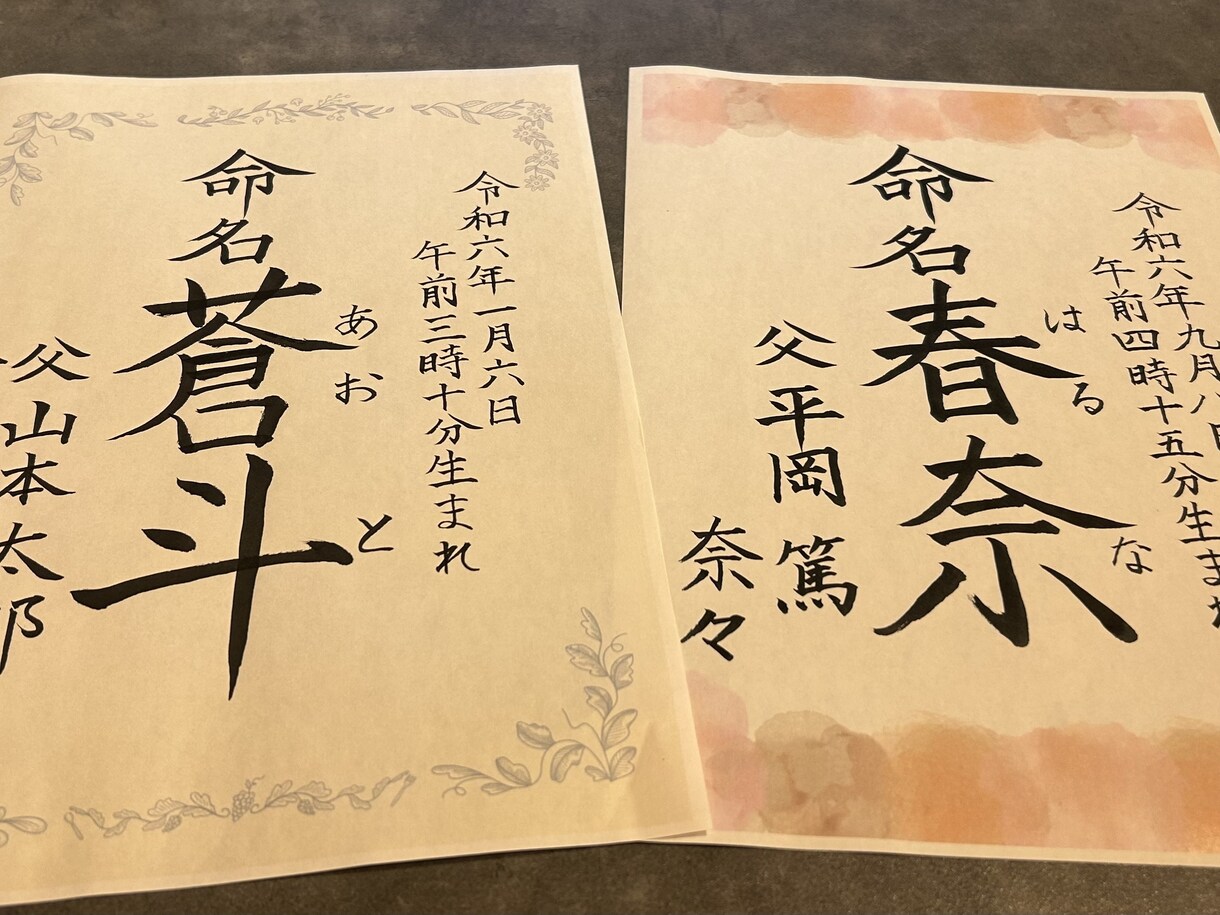 令和六年一月六日
午前三時十分生まれ
命名 蒼斗
あおと
父 山本太郎
令和六年九月八日
午前四時十五分生まれ
命名 春奈
はるな
父 平岡 篤
奈々